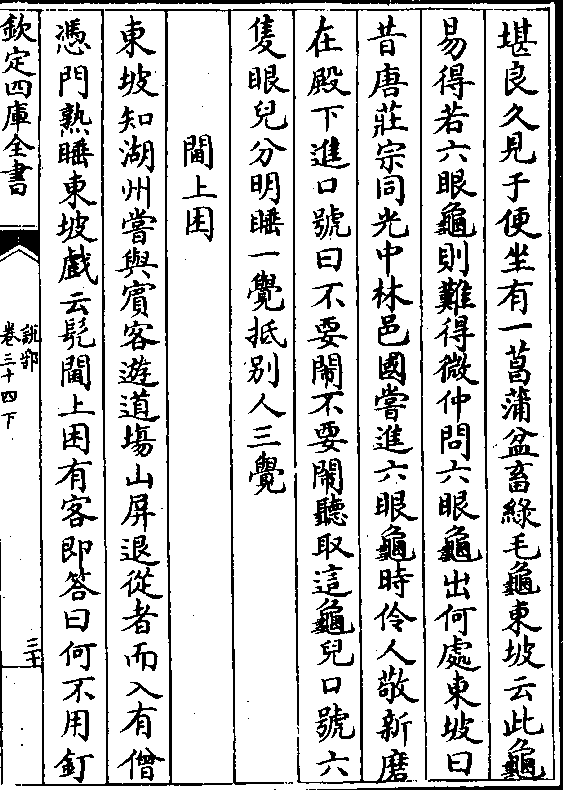 堪良久見于便坐有一菖蒲盆畜綠毛龜東坡云此龜
易得若六眼龜則難得微仲問六眼龜出何處東坡曰
昔唐莊宗同光中林邑國嘗進六眼龜時伶人敬新磨
在殿下進口號曰不要鬧不要鬧聽取這龜兒口號六
隻眼兒分明睡一覺抵别人三覺
閫上困
東坡知湖州嘗與賓客遊道塲山屏退從者而入有僧
憑門熟睡東坡戲云髡閫上困有客即答曰何不用釘
欽定四庫全書
說郛
卷三十四下